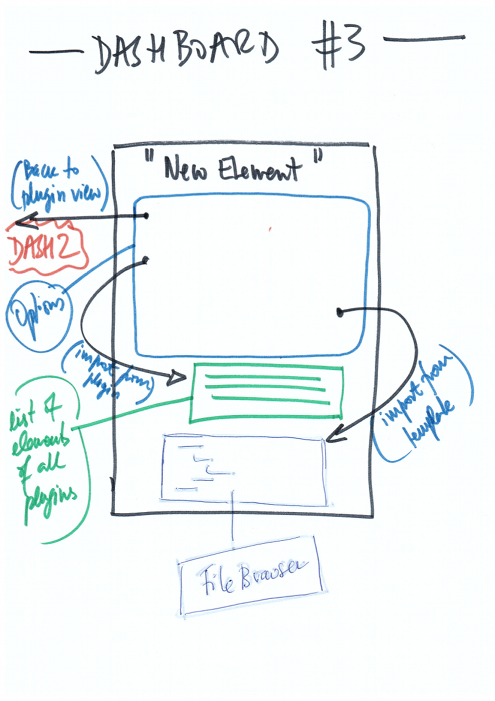 DASHBOARD #3
"New Element"
(Back to
plugin view)
DASH2
Options
(import from
plugin)
(import from
template)
list of
elements
of all
plugins
File Browser